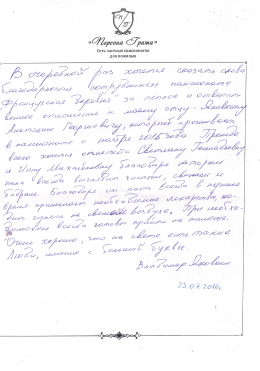 "Персона Грата"
Сеть частных пансионатов
для пожилых
В очередной раз хочется сказать слова
благодарности сотрудникам пансионата
Французская деревня за теплое и ответст-
венное отношение к моему отцу - Яковлеву
Анатолию Георгиевичу, который проживает
в пансионате с марта 2016 года. Прежде
всего хочется отметить Светлану Геннадьевну
и Инну Михайловну благодаря которым
папа всегда выглядит чистым, свежим и
бодрым. Благодаря им папа всегда в нужное
время принимает необходимые лекарства, хо-
дит гулять на свежем воздухе. При необхо-
димости всегда готовы прийти на помощь.
Очень хорошо, что на свете есть такие
Люди, именно с большой буквы
Владимир Яковлев
23.07.2016г